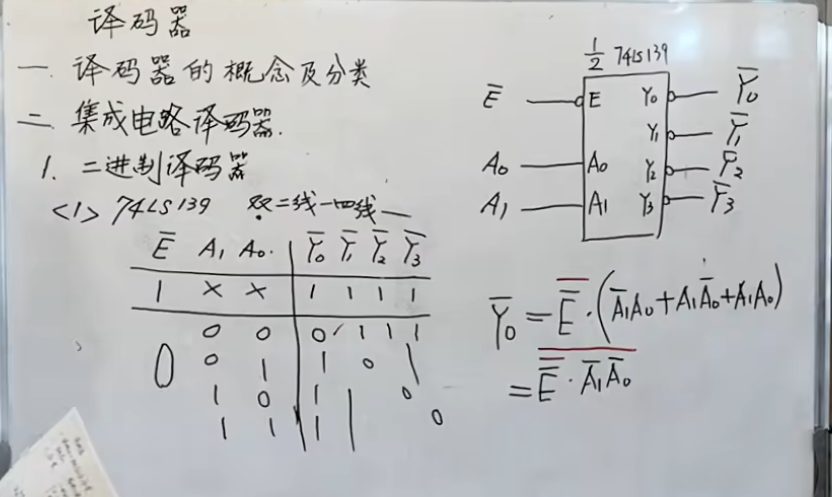 译码器
一 译码器的概念及分类
二 集成电路译码器.
1. 二进制译码器
<1> 74LS139 双二线—四线—
E̅ A₁ A₀. Y̅₀ Y̅₁ Y̅₂ Y̅₃
1 × × 1 1 1 1
0 0 0 1 1 1
0
0 1 1 0
1 0 1 0
1 1 1 0
1/2 74LS139
E̅ E Y₀ Y̅₀
Y₁ Y̅₁
A₀ A₀ Y₂ Y̅₂
A₁ A₁ Y₃ Y̅₃
Y̅₀ = E̅̅·(A̅₁A₀+A₁A̅₀+A₁A₀)
= E̅̅·A̅₁A̅₀